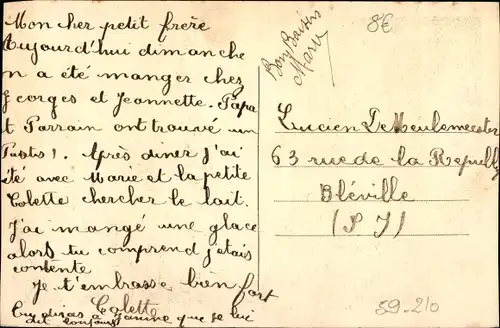 Mon cher petit frère
Aujourd'hui dimanche
on a été manger chez
Georges et Jeannette. Papa
et Parrain ont trouvé un
Après diner j'ai
été avec Marie et la petite
Colette chercher le lait.
J'ai mangé une glace
alors tu comprend j'etais
contente
Je t'embrasse bien fort
Colette
Tu diras à Janine que je lui
dit toujours
Bons Baisers
Marie
8€
Lucien DeMeulemeester
63 rue de la Republiq
Bléville
(S I)
59-210